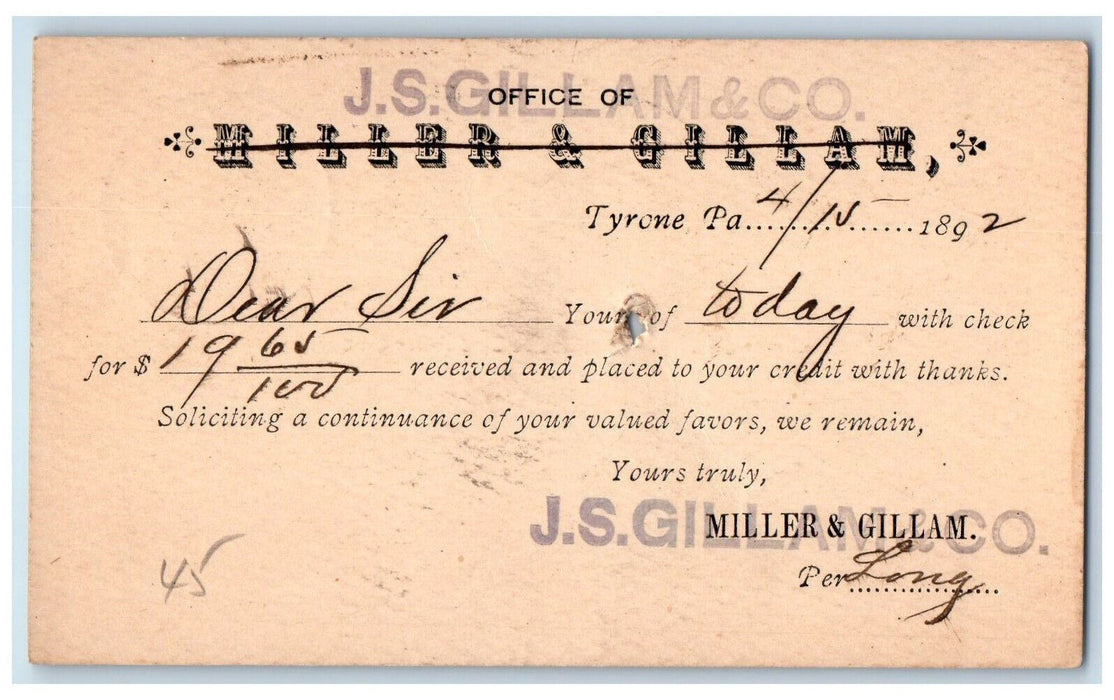 J.S.GILLAM & CO.
OFFICE OF
MILLER & GILLAM,
Tyrone Pa. 4/15 1892
Dear Sir Yours of today with check
for $ 19 65/100 received and placed to your credit with thanks.
Soliciting a continuance of your valued favors, we remain,
Yours truly,
J.S.GILLAM & CO.
MILLER & GILLAM.
Per Long
45